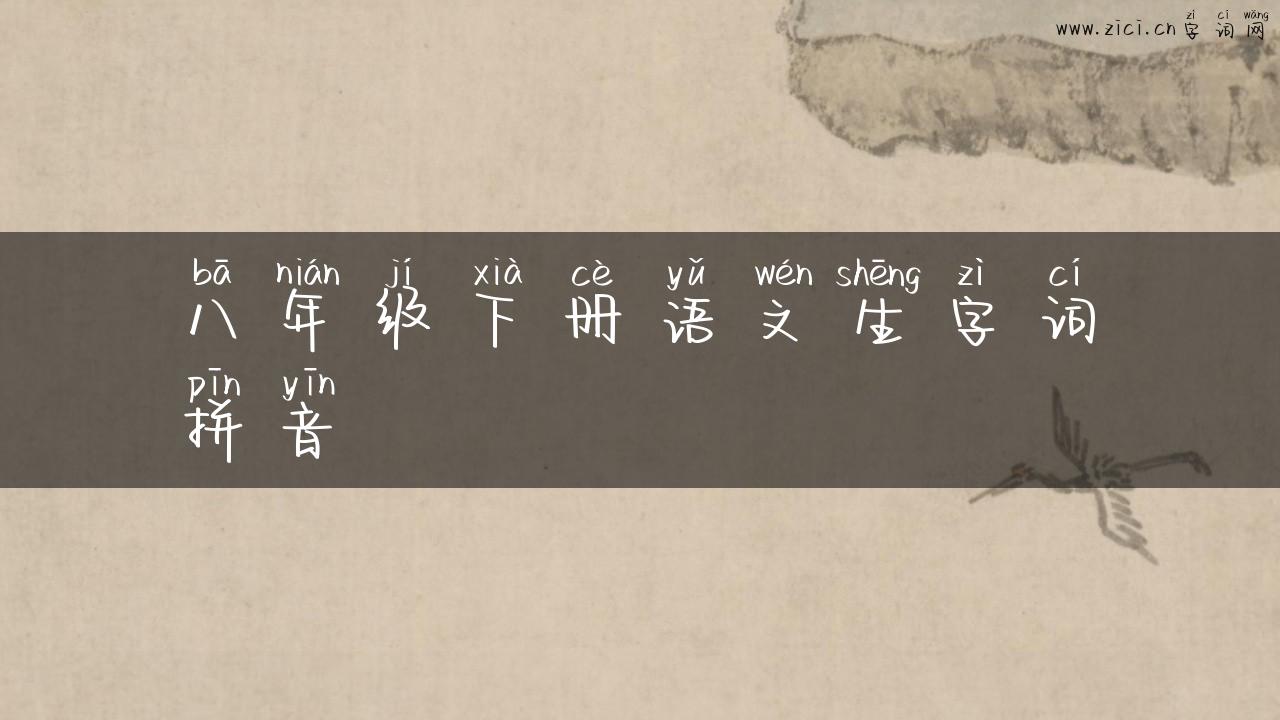 zì cí wǎng
www.zici.cn 字词网
bā nián jí xià cè yǔ wén shēng zì cí
八年级下册语文生字词
pīn yīn
拼音